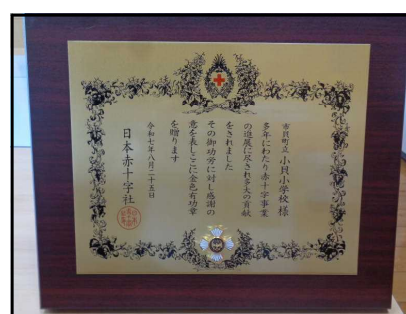 市貝町立 小貝小学校 様
多年にわたり赤十字事業
の進展に尽され多大の貢献
をされました
その御功労に対し感謝の
意を表しここに金色有功章
を贈ります
令和七年八月二十五日
日本赤十字社